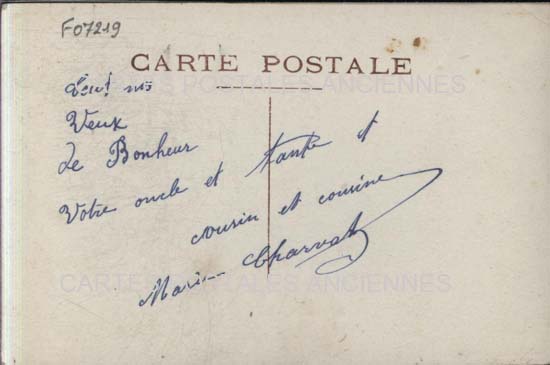 F07219
CARTE POSTALE
CARTES POSTALES ANCIENNES
Veux
de Bonheur
Votre oncle et tante et
cousin et cousine
Charvat
CARTES POSTALES ANCIENNES